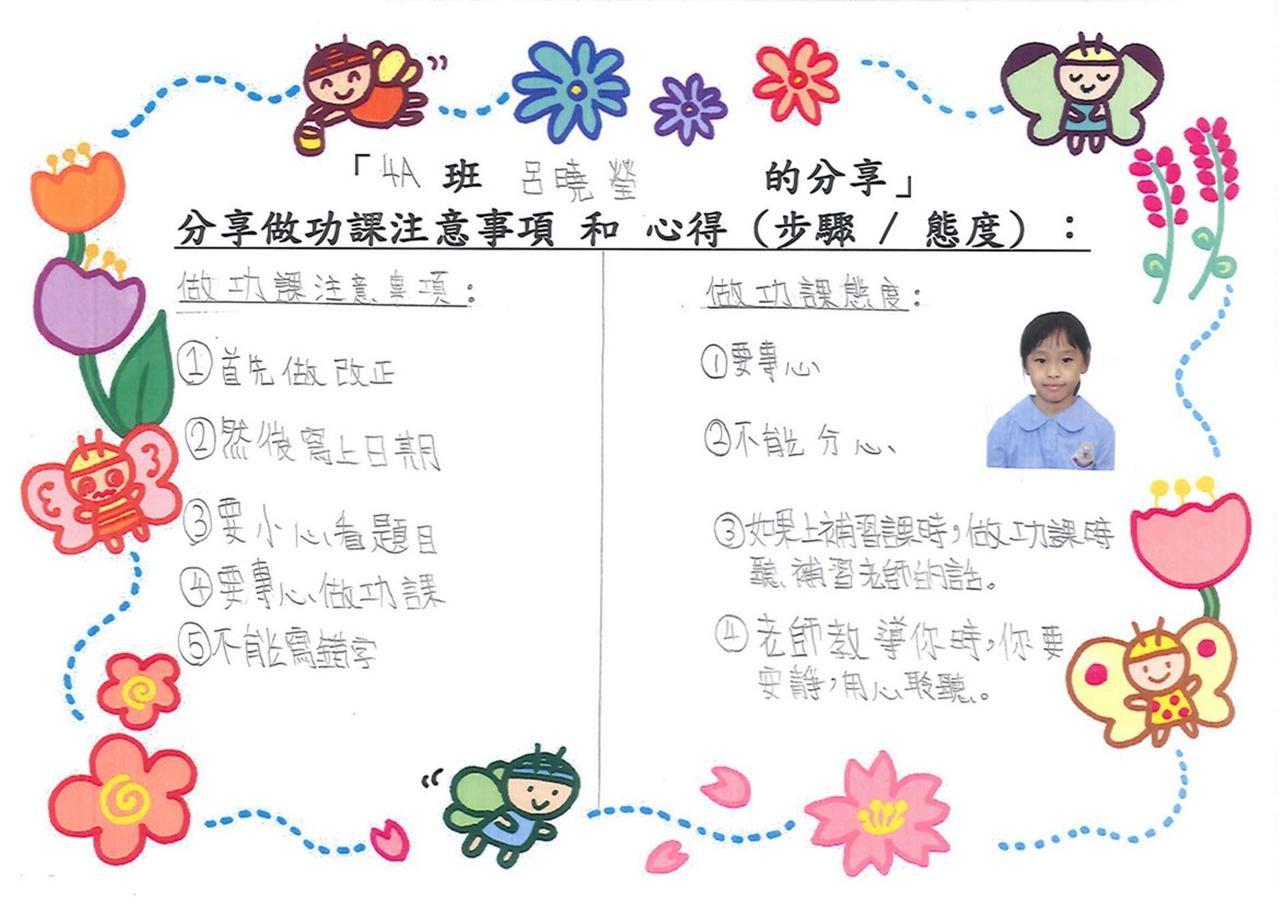 「4A 班 呂曉瑩 的分享」
分享做功課注意事項 和 心得（步驟 / 態度）：
做功課注意事項：
①首先做改正
②然後寫上日期
③要小心看題目
④要專心做功課
⑤不能寫錯字
做功課態度：
①要專心
②不能分心
③如果上補習課時，做功課時
聽補習老師的話。
④老師教導你時，你要
安靜，用心聆聽。